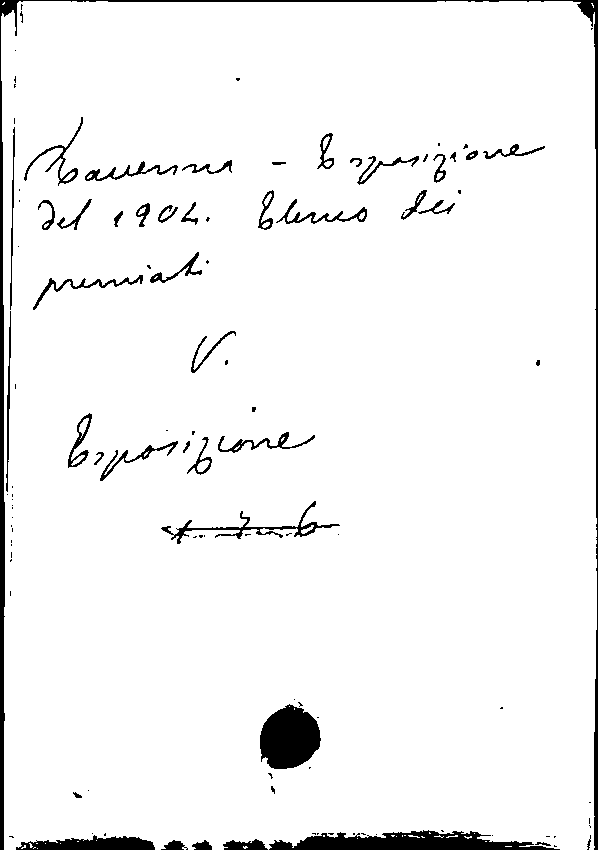 Ravenna - Esposizione
del 1904. Elenco dei
premiati
V.
Esposizione